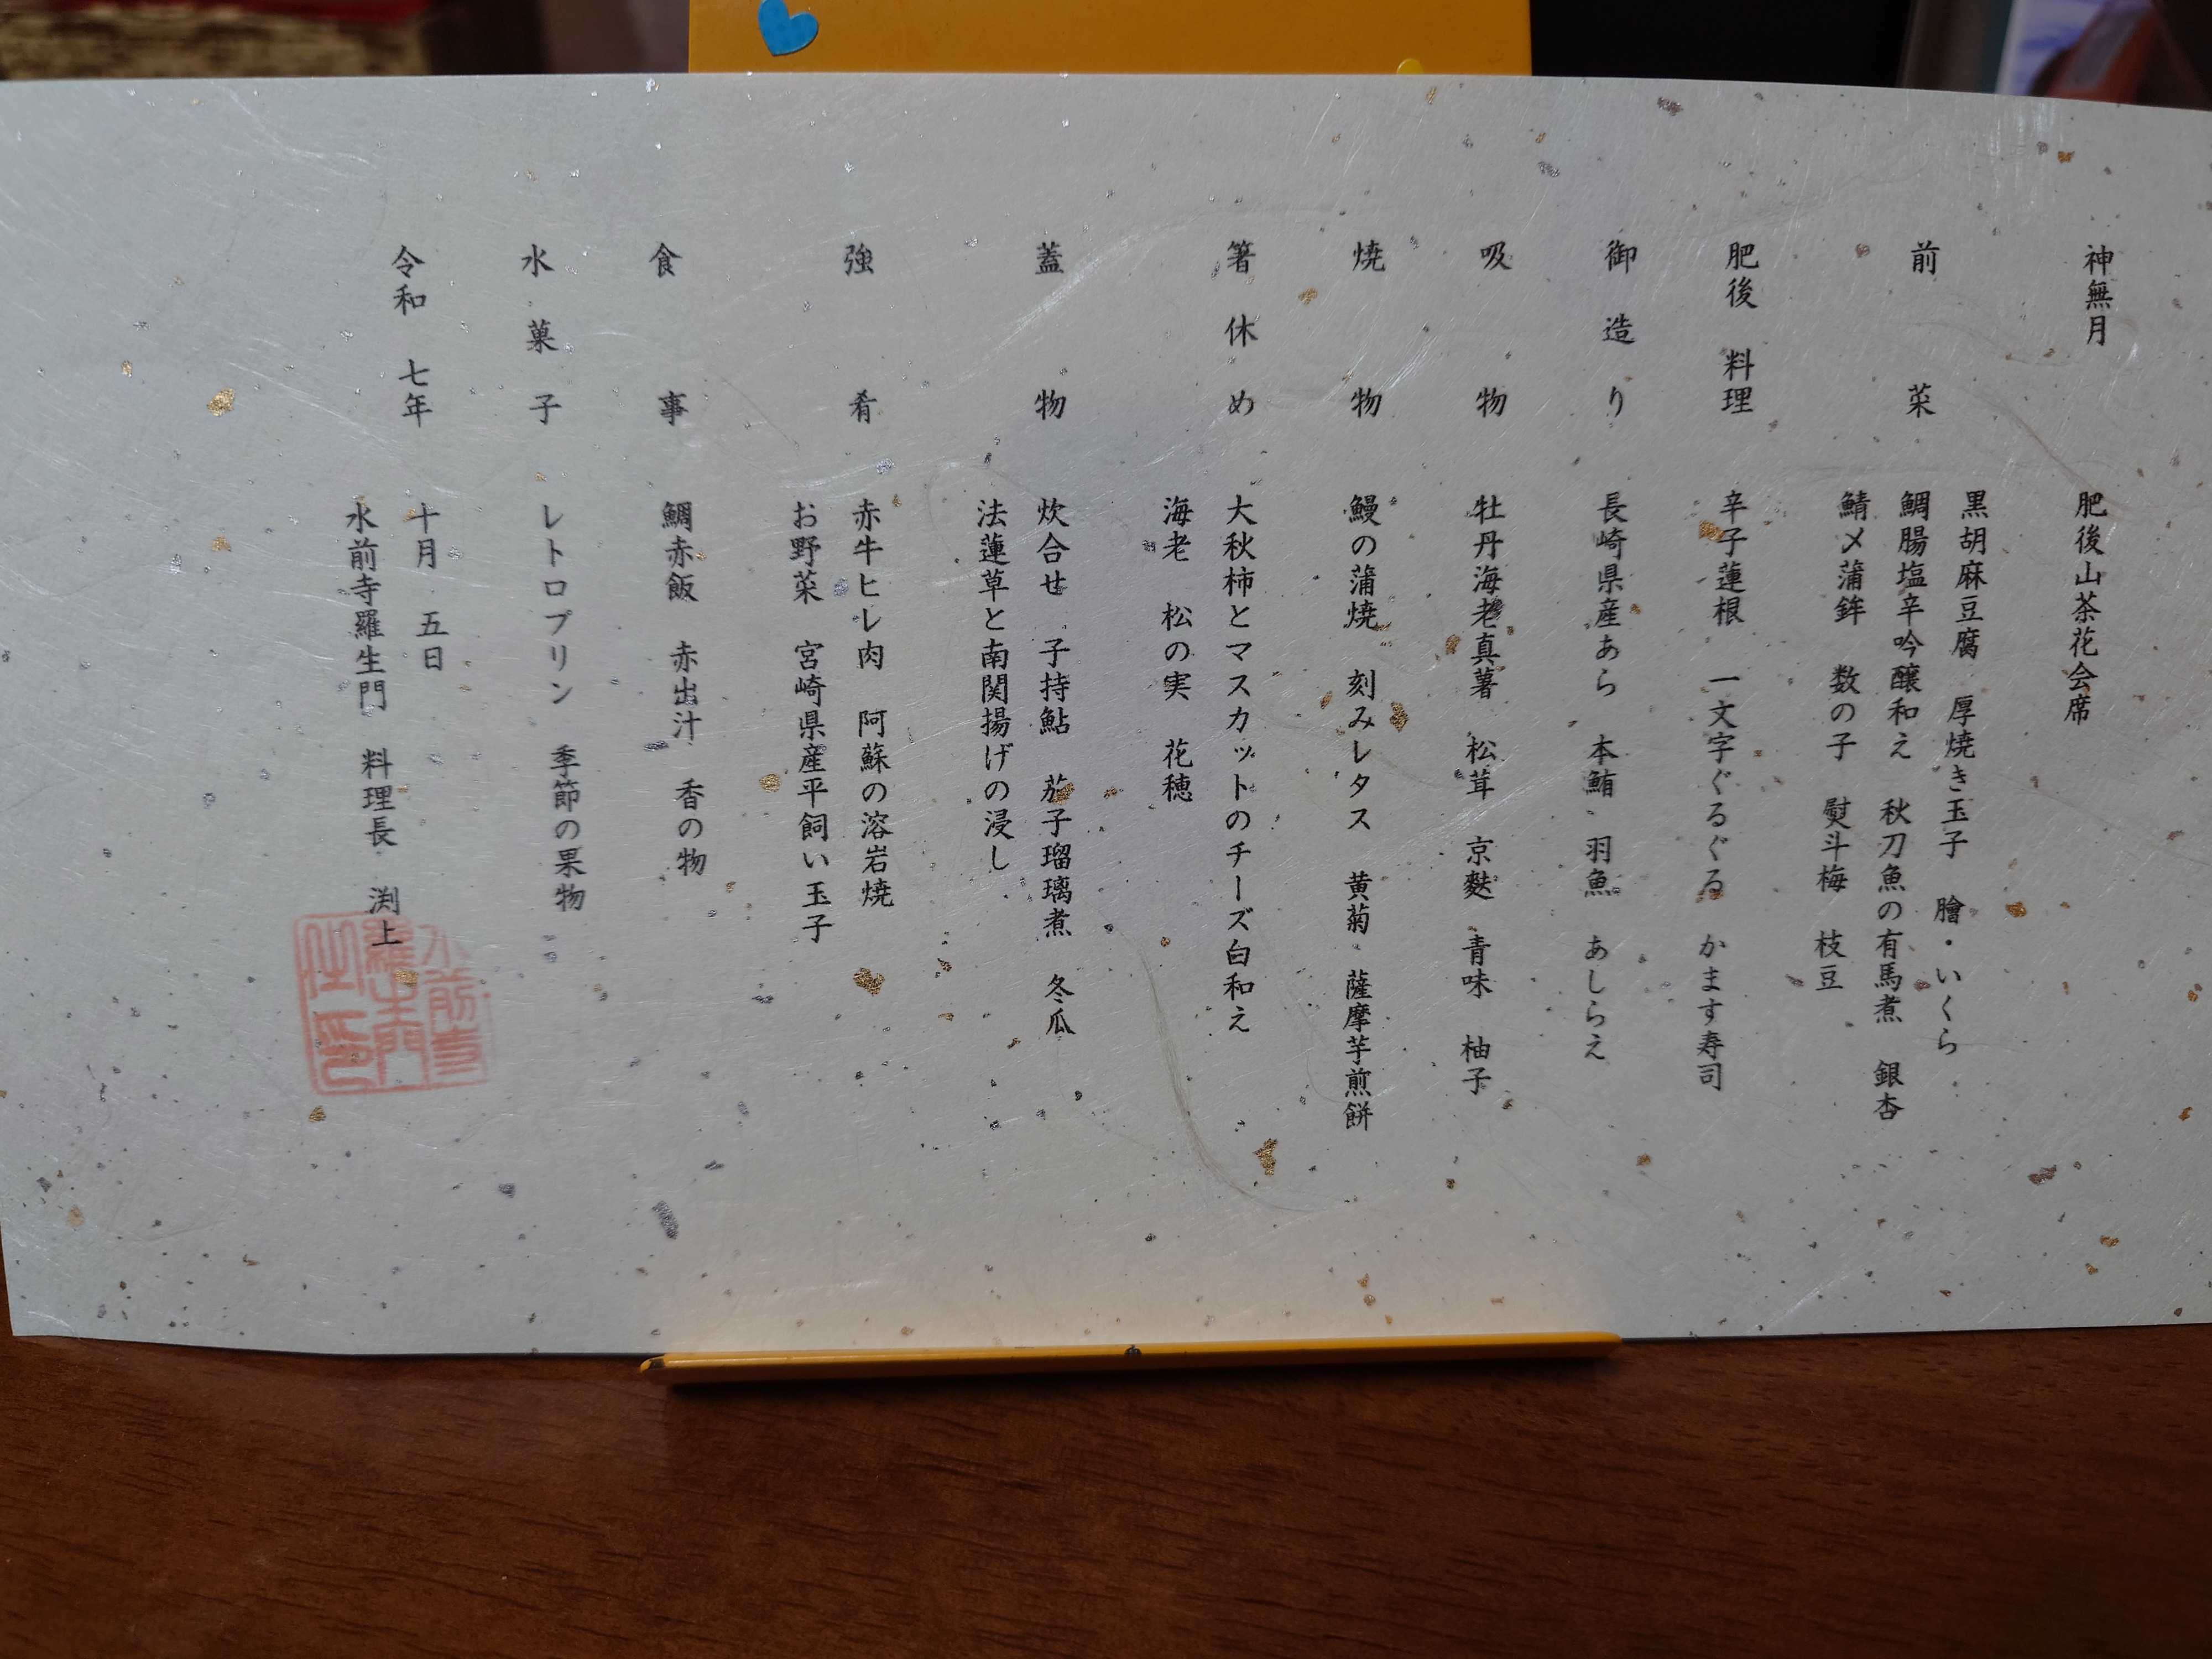 神無月　肥後山茶花会席
前菜　黒胡麻豆腐　厚焼き玉子　膾・いくら
鯛腸塩辛吟醸和え　秋刀魚の有馬煮　銀杏
鯖〆蒲鉾　数の子　熨斗梅　枝豆
肥後　料理　辛子蓮根　一文字ぐるぐる　かます寿司
御造り　長崎県産あら　本鮪　羽魚　あしらえ
吸物　牡丹海老真薯　松茸　京麩　青味　柚子
焼物　鰻の蒲焼　刻みレタス　黄菊　薩摩芋煎餅
箸休め　大秋柿とマスカットのチーズ白和え
海老　松の実　花穂
蓋物　炊合せ　子持鮎　茄子瑠璃煮　冬瓜
法蓮草と南関揚げの浸し
強肴　赤牛ヒレ肉　阿蘇の溶岩焼
お野菜　宮崎県産平飼い玉子
食事　鯛赤飯　赤出汁　香の物
水菓子　レトロプリン　季節の果物
令和　七年　十月　五日
水前寺羅生門　料理長　渕上
水前寺
羅生門
之印